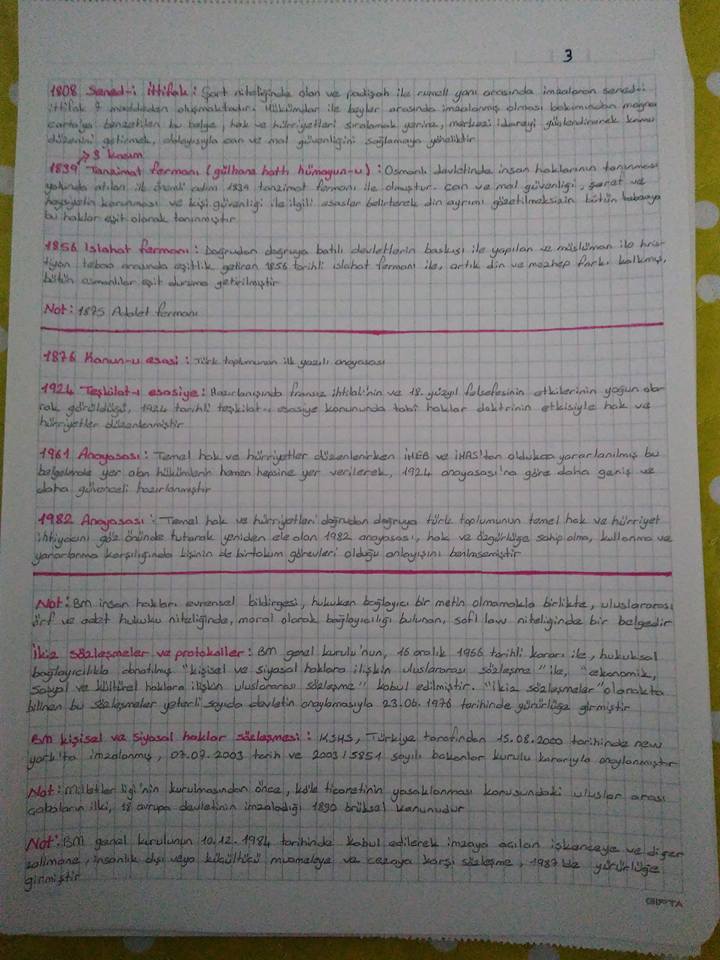 3
1808 Sened-i ittifak : Şart niteliğinde olan ve padişah ile rumeli yanı arasında imzalanan sened-i
ittifak 7 maddeden oluşmaktadır. Hükümdar ile beyler arasında imzalanmış olması bakımından magna
carta'ya benzetilen bu belge, hak ve hürriyetleri sıralamak yerine, merkezi idareyi güçlendirerek kamu
düzenini getirmek, dolayısıyla can ve mal güvenliğini sağlamaya yöneliktir
3 kasım
1839 Tanzimat fermanı (gülhane hattı hümayun-u) : Osmanlı devletinde insan haklarının tanınması
yolunda atılan ilk önemli adım 1839 tanzimat fermanı ile olmuştur. can ve mal güvenliği, şeref ve
haysiyetin korunması ve kişi güvenliği ile ilgili esaslar belirterek din ayrımı gözetilmeksizin bütün tebaaya
bu haklar eşit olarak tanınmıştır
1856 Islahat fermanı : Doğrudan doğruya batılı devletlerin baskısı ile yapılan ve müslüman ile hris-
tiyan tebaa arasında eşitlik getiren 1856 tarihli ıslahat fermanı ile, artık din ve mezhep farkı kalkmış,
bütün osmanlılar eşit duruma getirilmiştir
Not : 1875 Adalet fermanı
1876 Kanun-u esasi : Türk toplumunun ilk yazılı anayasası
1924 Teşkilat-ı esasiye : Hazırlanışında fransız ihtilali'nin ve 18. yüzyıl felsefesinin etkilerinin yoğun ola-
rak görüldüğü, 1924 tarihli teşkilat-ı esasiye kanununda tabi haklar doktrinin etkisiyle hak ve
hürriyetler düzenlenmiştir
1961 Anayasası : Temel hak ve hürriyetler düzenlenirken iHEB ve iHAS'tan oldukça yararlanılmış bu
belgelerde yer alan hükümlerin hemen hepsine yer verilerek, 1924 anayasası'na göre daha geniş ve
daha güvenceli hazırlanmıştır
1982 Anayasası : Temel hak ve hürriyetleri doğrudan doğruya türk toplumunun temel hak ve hürriyet
ihtiyacını göz önünde tutarak yeniden ele alan 1982 anayasası, hak ve özgürlüğe sahip olma, kullanma ve
yararlanma karşılığında kişinin de birtakım görevleri olduğu anlayışını benimsemiştir
Not : BM insan hakları evrensel bildirgesi, hukuken bağlayıcı bir metin olmamakla birlikte, uluslararası
örf ve adet hukuku niteliğinde, moral olarak bağlayıcılığı bulunan, sofl law niteliğinde bir belgedir
İkiz sözleşmeler ve protokoller : BM genel kurulu'nun, 16 aralık 1966 tarihli kararı ile, hukuksal
bağlayıcılıkla donatılmış "kişisel ve siyasal haklara ilişkin uluslararası sözleşme" ile, "ekonomik,
sosyal ve kültürel haklara ilişkin uluslararası sözleşme" kabul edilmiştir. "ikiz sözleşmeler" olarakta
bilinen bu sözleşmeler yeterli sayıda devletin onaylamasıyla 23.06.1976 tarihinde yürürlüğe girmiştir
BM kişisel ve siyasal haklar sözleşmesi : KSHS, Türkiye tarafından 15.08.2000 tarihinde new
york'ta imzalanmış, 07.07.2003 tarih ve 2003/5851 sayılı bakanlar kurulu kararıyla onaylanmıştır
Not : Milletler ligi'nin kurulmasından önce, köle ticaretinin yasaklanması konusundaki uluslar arası
çabaların ilki, 18 avrupa devletinin imzaladığı 1890 brüksel kanunudur
Not : BM genel kurulunun 10.12.1984 tarihinde kabul edilerek imzaya açılan işkenceye ve diğer
zalimane, insanlık dışı veya küçültücü muameleye ve cezaya karşı sözleşme, 1987'de yürürlüğe
girmiştir